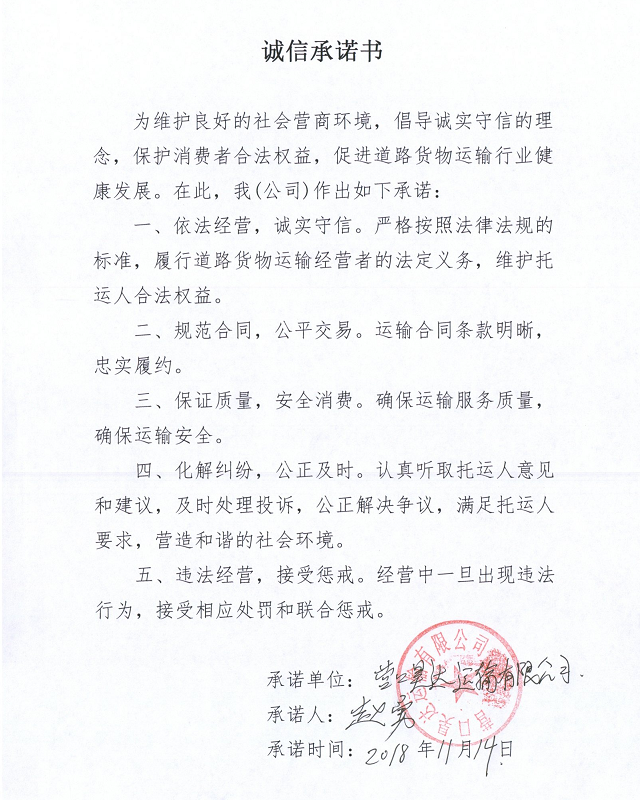 诚信承诺书
为维护良好的社会营商环境，倡导诚实守信的理
念，保护消费者合法权益，促进道路货物运输行业健
康发展。在此，我(公司)作出如下承诺：
一、依法经营，诚实守信。严格按照法律法规的
标准，履行道路货物运输经营者的法定义务，维护托
运人合法权益。
二、规范合同，公平交易。运输合同条款明晰，
忠实履约。
三、保证质量，安全消费。确保运输服务质量，
确保运输安全。
四、化解纠纷，公正及时。认真听取托运人意见
和建议，及时处理投诉，公正解决争议，满足托运人
要求，营造和谐的社会环境。
五、违法经营，接受惩戒。经营中一旦出现违法
行为，接受相应处罚和联合惩戒。
承诺单位：营口昊达运输有限公司.
承诺人：赵勇
承诺时间：2018年11月14日
营口昊达运输有限公司